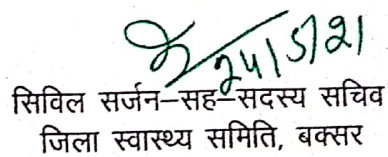 24/5/21
सिविल सर्जन–सह–सदस्य सचिव
जिला स्वास्थ्य समिति, बक्सर